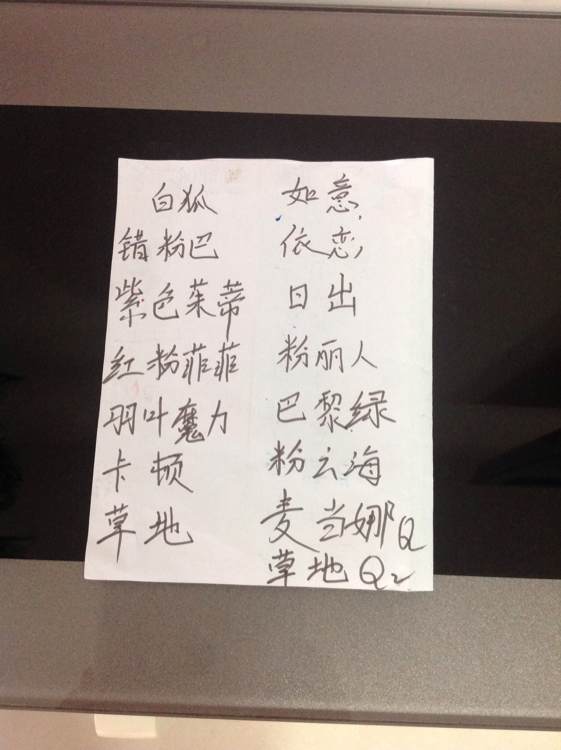 白狐
错粉巴
紫色茱蒂
红粉菲菲
羽叶魔力
卡顿
草地
如意
依恋
日出
粉丽人
巴黎绿
粉云海
麦当娜Q
草地Q2